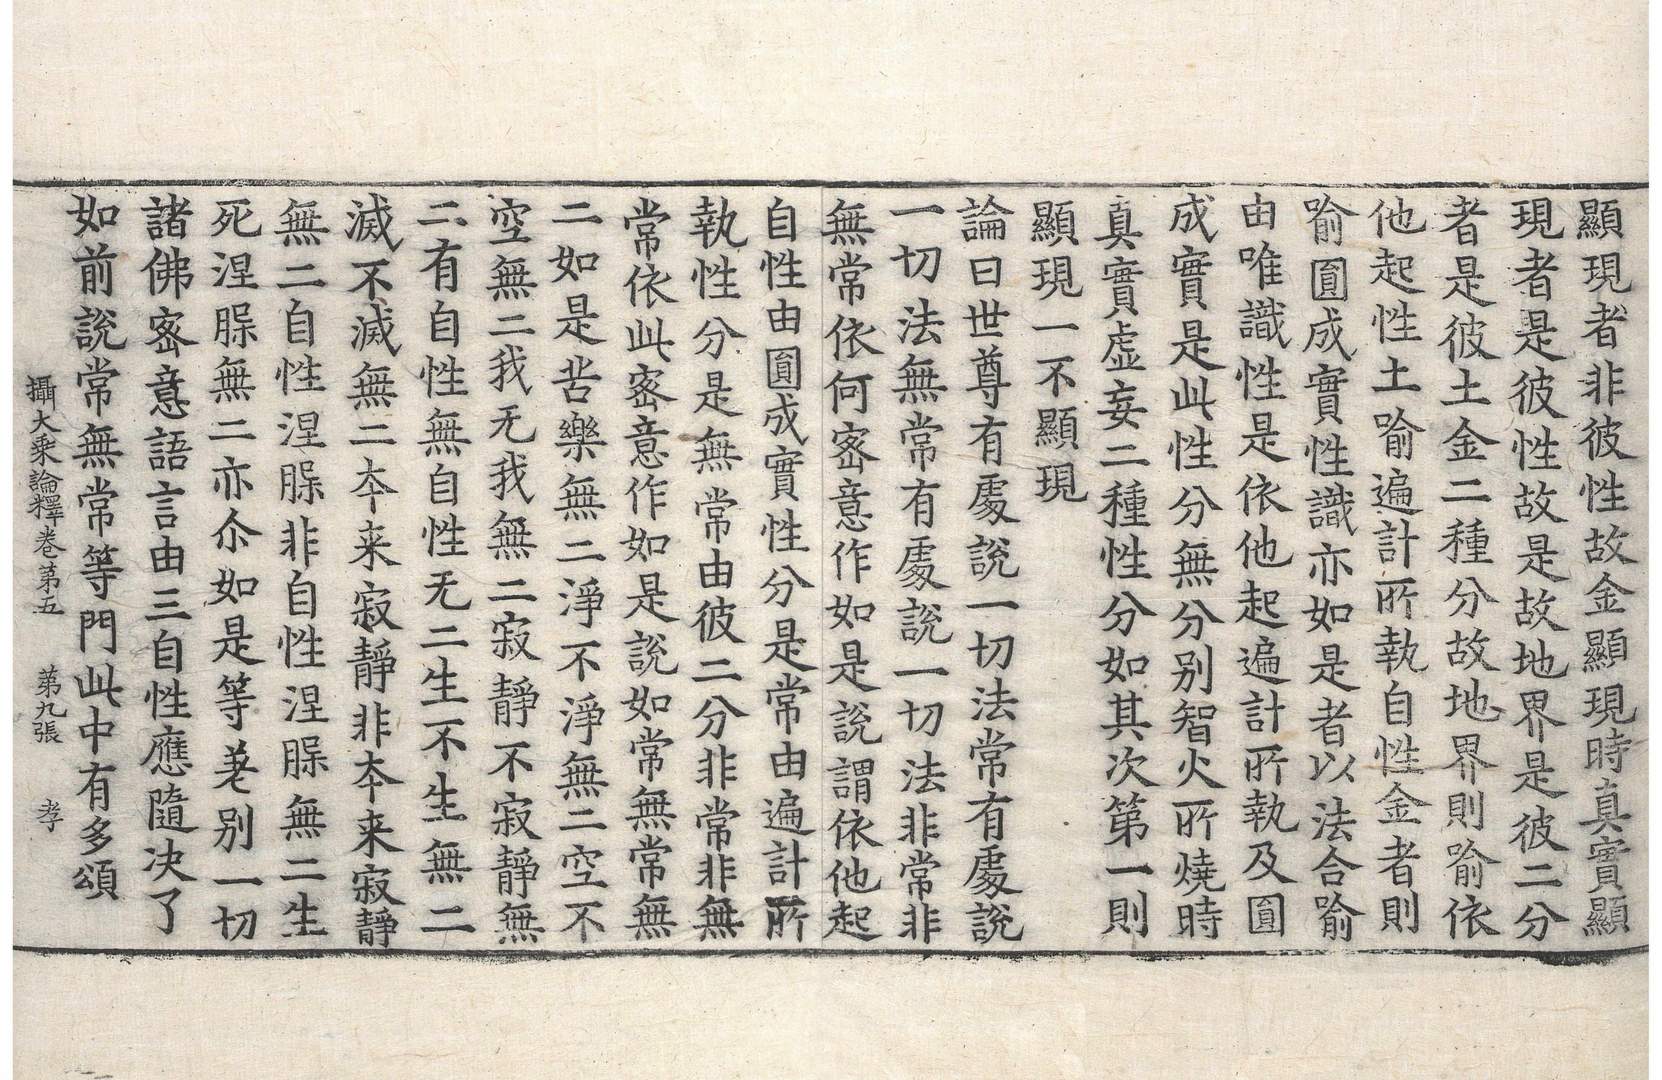 顯現者非彼性故金顯現時真實顯
現者是彼性故是故地界是彼二分
者是彼土金二種分故地界則喻依
他起性土喻遍計所執自性金者則
喻圓成實性識亦如是者以法合喻
由唯識性是依他起遍計所執及圓
成實是此性分無分别智火所燒時
真實虛妄二種性分如其次第一則
顯現一不顯現
論曰世尊有處說一切法常有處說
一切法無常有處說一切法非常非
無常依何密意作如是說謂依他起
自性由圓成實性分是常由遍計所
執性分是無常由彼二分非常非無
常依此密意作如是說如常無常無
二如是苦樂無二淨不淨無二空不
空無二我无我無二寂靜不寂靜無
二有自性無自性无二生不生無二
滅不滅無二本来寂靜非本来寂靜
無二自性涅槃非自性涅槃無二生
死涅槃無二亦尒如是等差别一切
諸佛密意語言由三自性應隨决了
如前說常無常等門此中有多頌
攝大乘論釋卷第五 第九張 孝